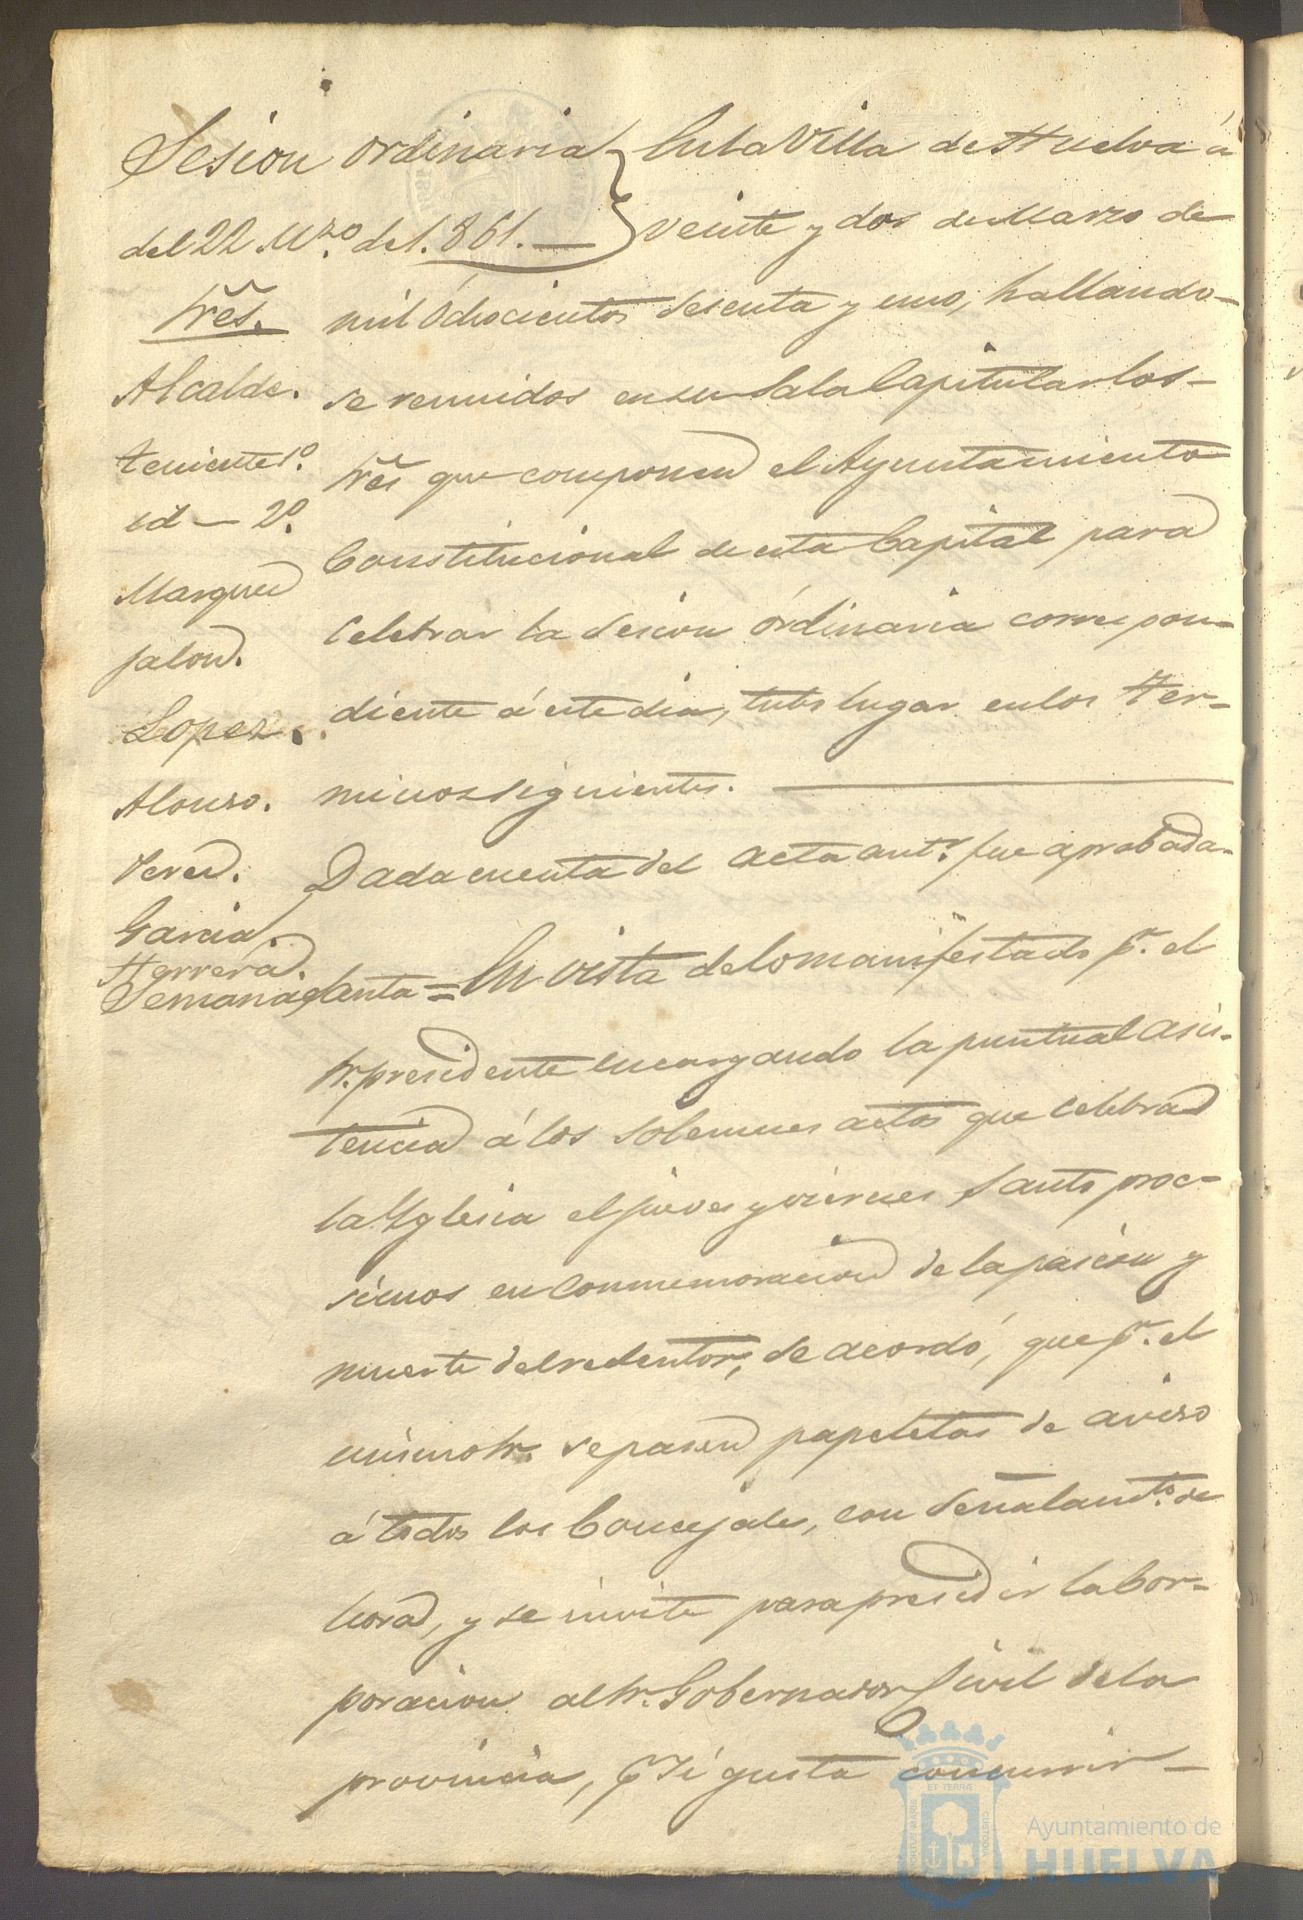 Sesion ordinaria
del 22 Mzo. de 1.861.
Sres.
Alcalde.
teniente 1º.
id — 2º.
Marquez
Jalon.
Lopez.
Alonso.
Perez.
Garcia.
Herrera.
En la Villa de Huelva á
veinte y dos de Marzo de
mil Ochocientos sesenta y uno, hallando-
se reunidos en su Sala Capitular los-
Sres que componen el Ayuntamiento
Constitucional de esta Capital para
celebrar la sesion órdinaria correspon-
diente á este dia, tubo lugar en los ter-
minos siguientes.
Dada cuenta del acta antr. fue aprobada.
Semana santa = En vista de lo manifestado pr. el
Sr. presidente encargando la puntual asis-
tencia á los solemnes actos que celebra
la Yglesia el jueves y viernes Santo proc-
simos en conmemoracion de la pasion y
muerte del redentor; se acordó, que pr. el
mismo Sr. se pasen papeletas de aviso
á todos los Concejales, con señalamto. de
hora, y se invite para presidir la Cor-
poracion al Sr. Gobernador Civil de la
provincia, pr si gusta concurrir-
Ayuntamiento de
HUELVA